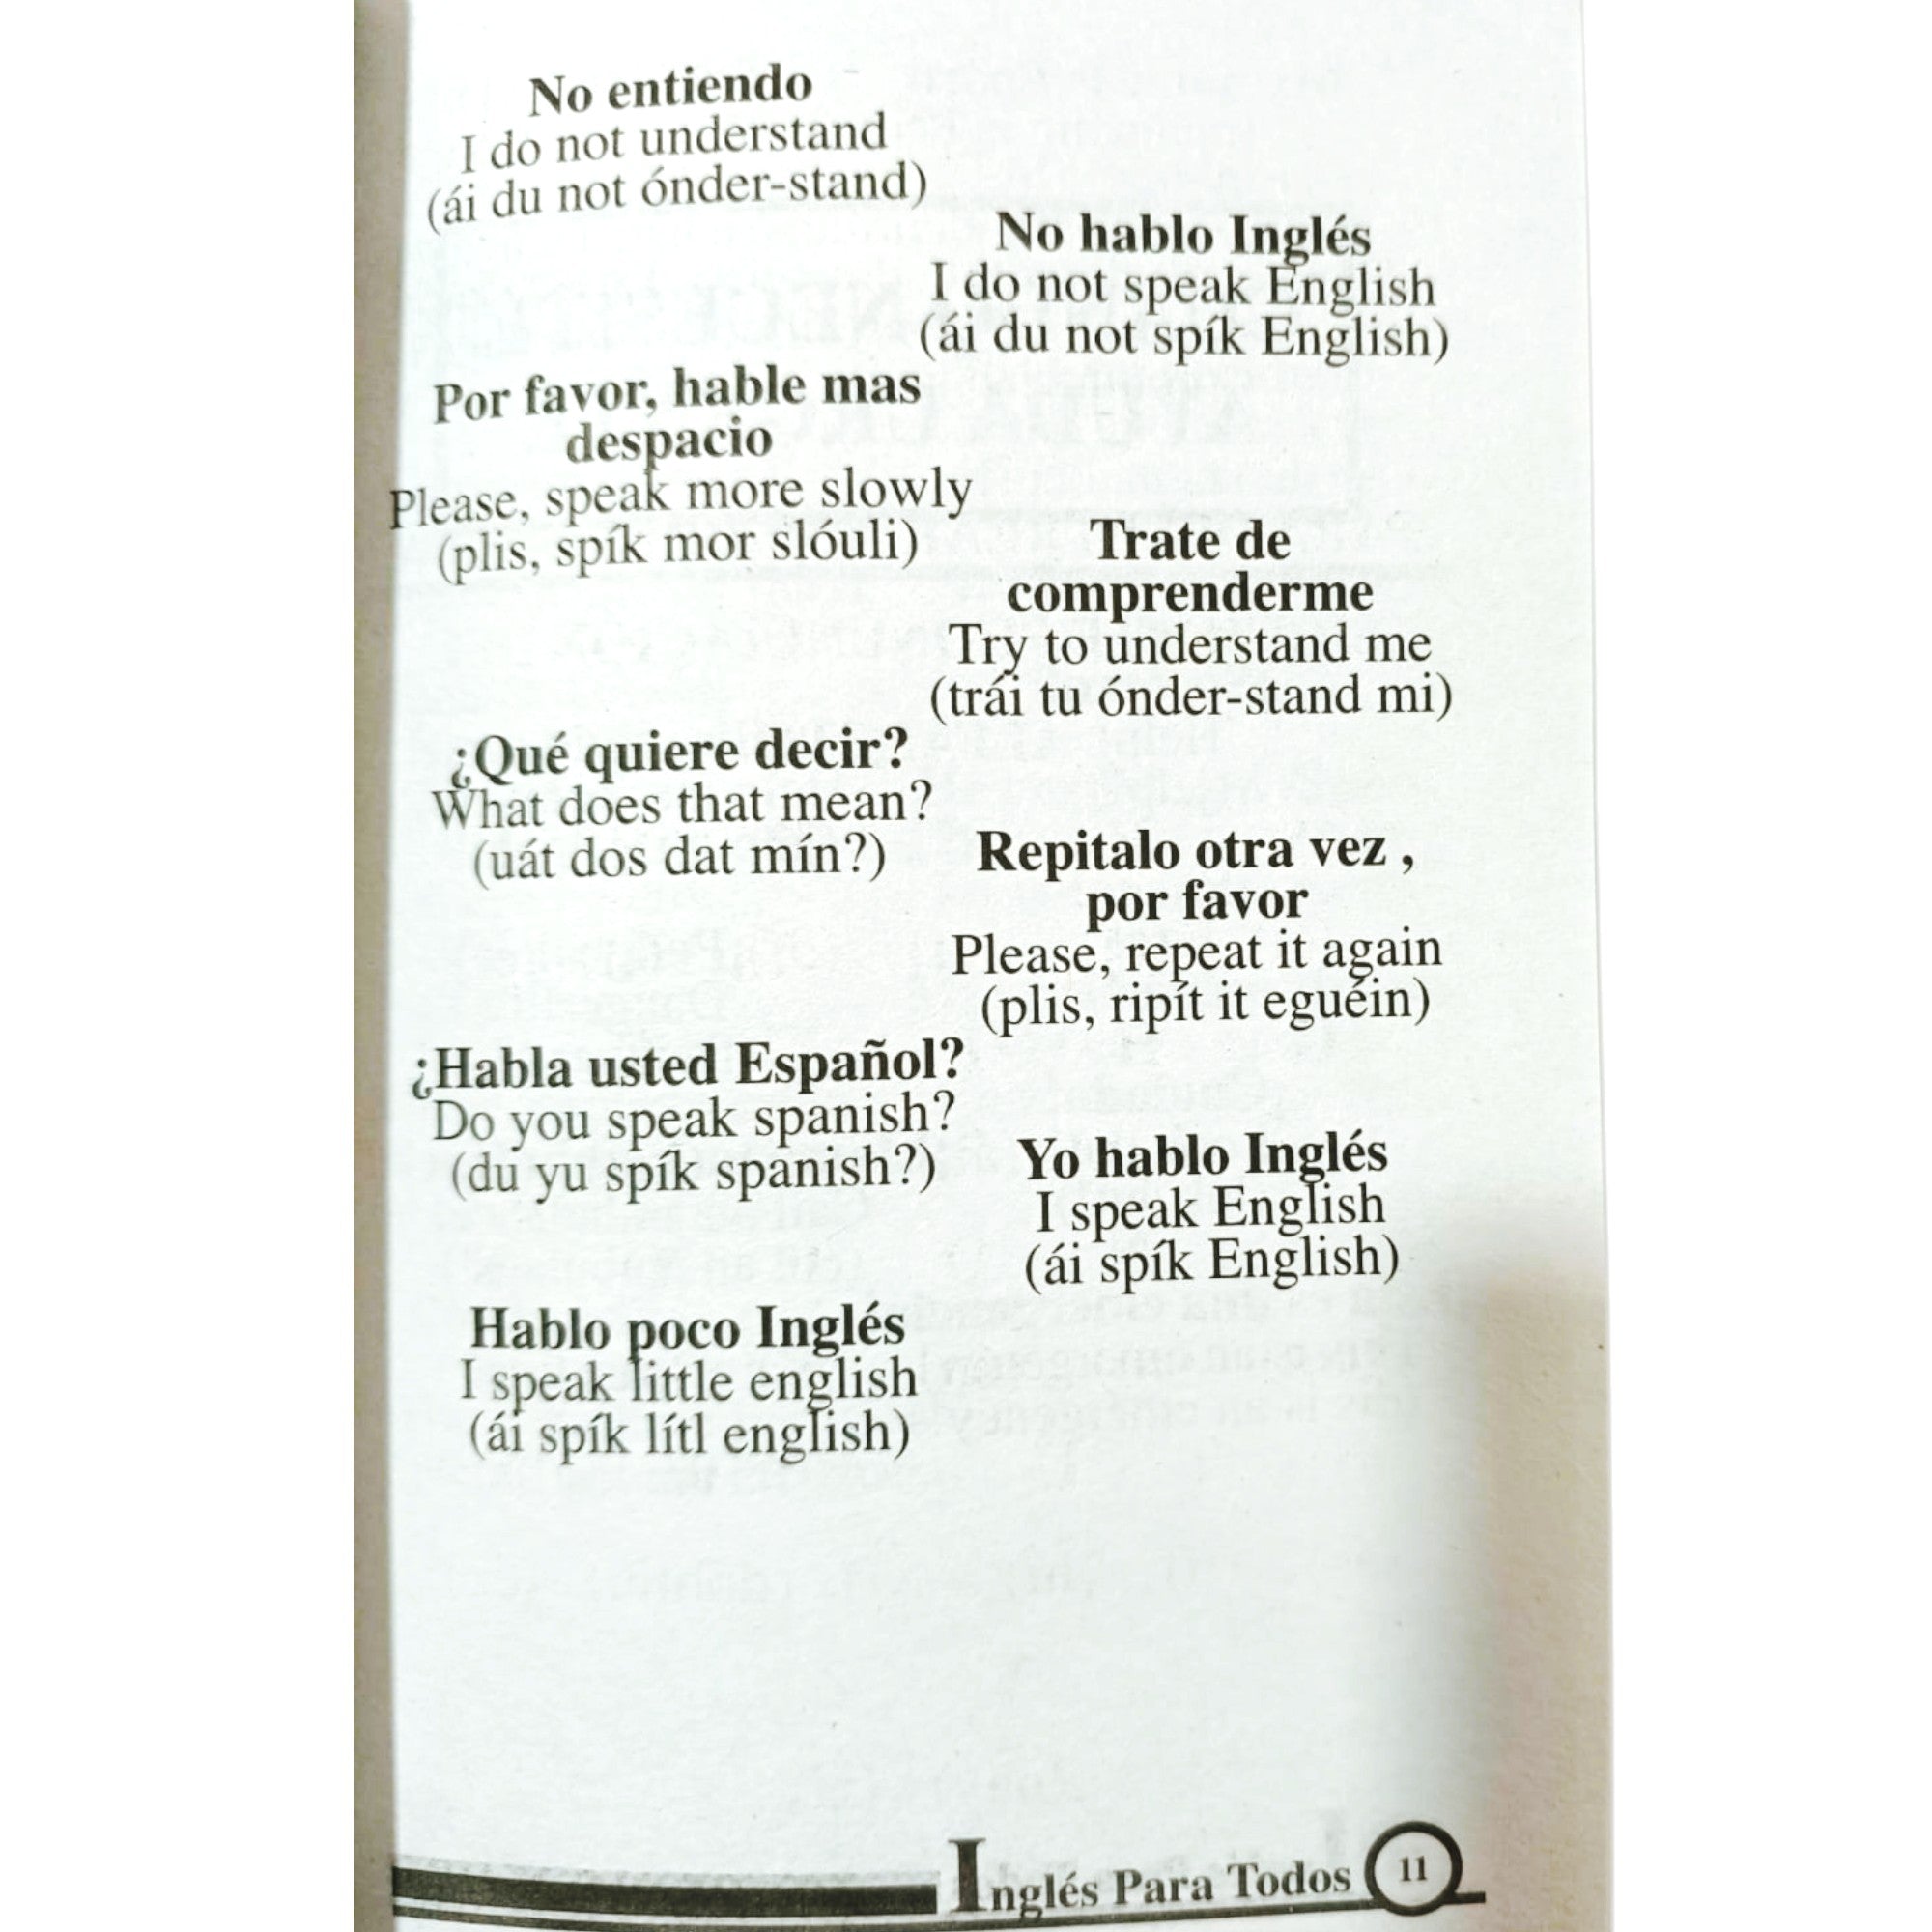 No entiendo
I do not understand
(ái du not ónder-stand)
No hablo Inglés
I do not speak English
(ái du not spík English)
Por favor, hable mas
despacio
Please, speak more slowly
(plis, spík mor slóuli)
Trate de
comprenderme
Try to understand me
(trái tu ónder-stand mi)
¿Qué quiere decir?
What does that mean?
(uát dos dat mín?)
Repitalo otra vez ,
por favor
Please, repeat it again
(plis, ripít it eguéin)
¿Habla usted Español?
Do you speak spanish?
(du yu spík spanish?)
Yo hablo Inglés
I speak English
(ái spík English)
Hablo poco Inglés
I speak little english
(ái spík lítl english)
Inglés Para Todos 11